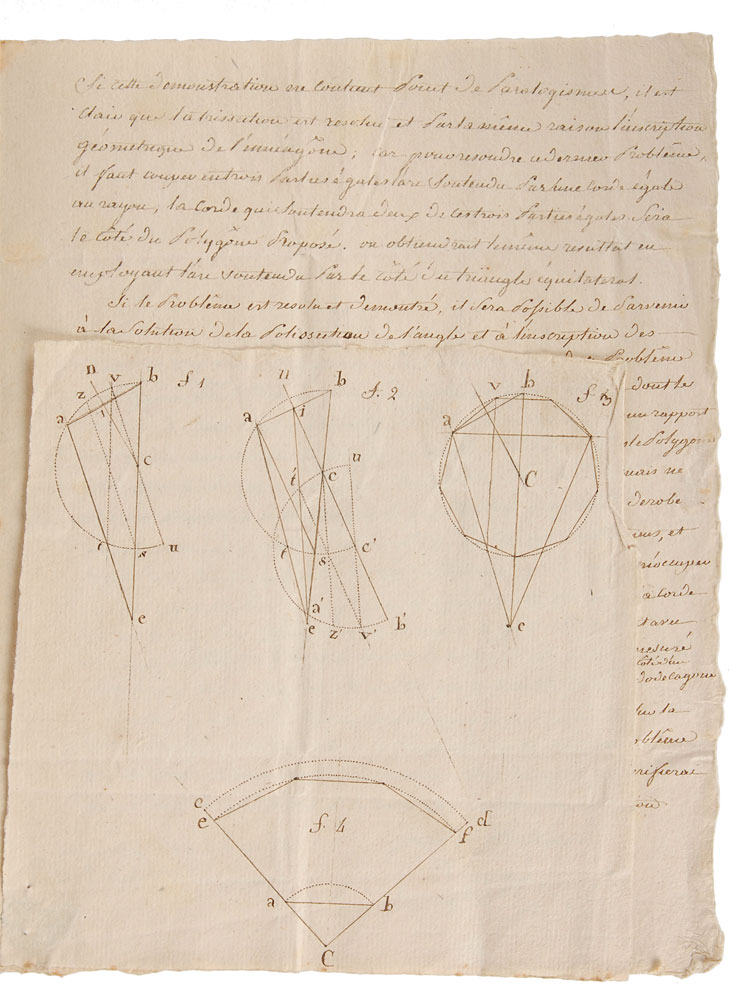 Si cette demonstration ne contient Point de Paralogismes, il est
clair que la trissection est resolue et Par la même raison l'inscription
géometrique de l'ennéagône ; car pour resoudre ce dernier Problême,
il faut couper en trois Parties égales l'arc soutendu Par une corde égale
au rayon, la corde qui soutendra deux de ces trois Parties égales sera
le côté du Polygône Proposé. on obtiendrait le même resultat en
employant l'arc soutendu Par le côté du triangle équilateral.
Si le Problême est resolu et demontré, il sera Possible de Parvenir
à la solution de la Polissection de l'angle et à l'inscription des
de Problême
dont le
un rapport
le Polygone
mais ne
derobe
et
réoccuper
corde
mesuré
côté d'un
dodecagone
la
problême
verifierai
n v b f 1
z
a i
c
l s u
e
n b f. 2
a i
u
l c
l s c'
a'
e z' v' b'
v b f 3
a
C
e
c
e f. 4 f d
a b
C